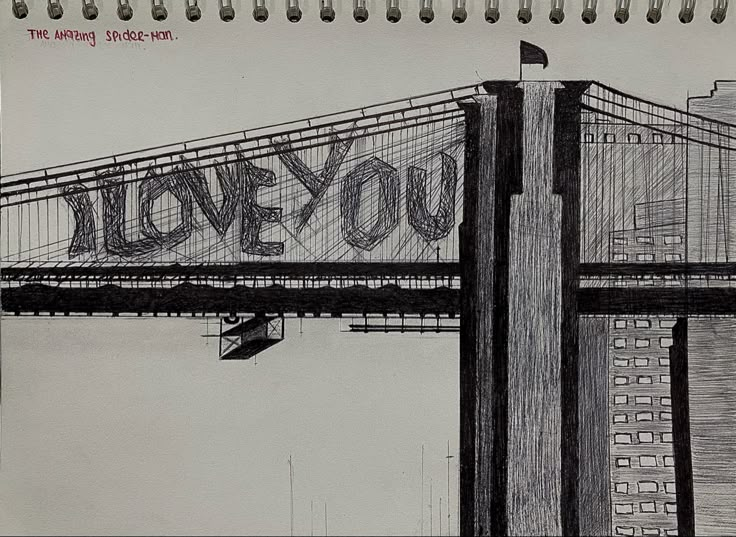 THE AMAZING SPIDER-MAN.
I LOVE YOU